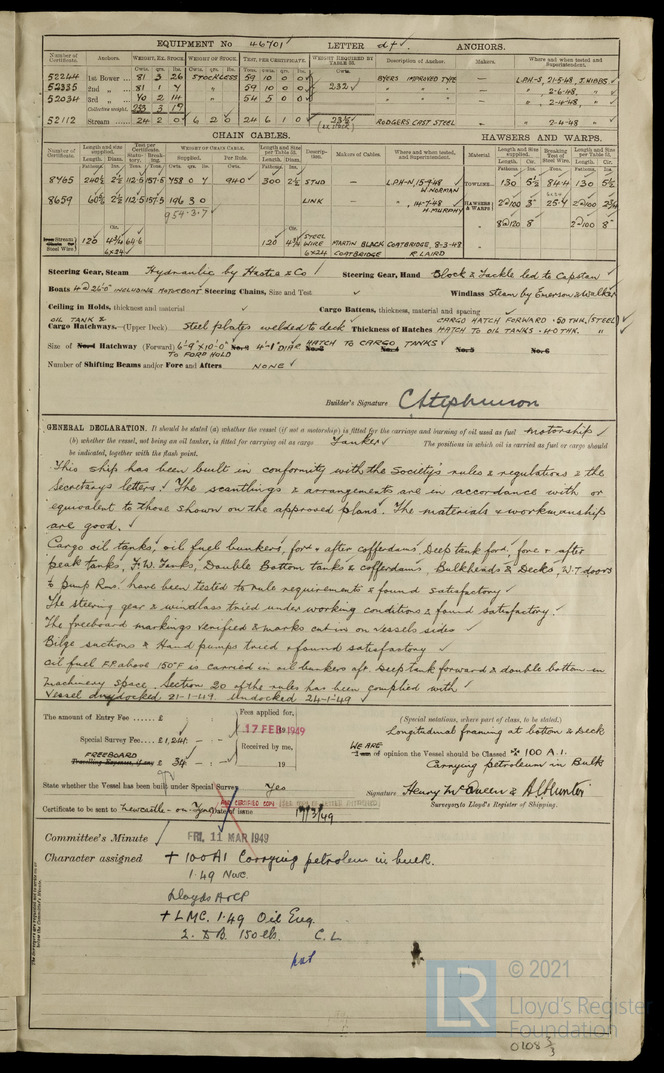 EQUIPMENT No 46701 LETTER d† ANCHORS.
Number of Certificate. Anchors. WEIGHT, EX. STOCK. WEIGHT OF STOCK. TEST, PER CERTIFICATE. WEIGHT REQUIRED BY TABLE 53. Description of Anchor. Makers. Where and when tested and Superintendent.
52244 1st Bower 81 3 26 STOCKLESS 59 10 0 0 BYERS IMPROVED TYPE — L.P.H-S, 21-5-48, J. HIBBS
52335 2nd " 81 1 4 " 59 10 0 0 232 " " " — " 2-6-48, "
52034 3rd " 70 2 14 " 54 5 0 0 " " " — " 2-4-48, "
Collective weight. 233 3 17
52112 Stream 24 2 0 6 2 0 24 6 1 0 23½ RODGERS CAST STEEL — " 2-4-48 "
CHAIN CABLES. HAWSERS AND WARPS.
Number of Certificate. Length and size supplied. Test per Certificate. WEIGHT OF CHAIN CABLE. Length and Size per Table 53. Description. Makers of Cables. Where and when tested, and Superintendent. Material Length and size supplied. Breaking Test of Steel Wire. Length and Size per Table 53.
8765 240½ 2½ 112·5 157·5 758 0 7 940 300 2½ STUD — L.P.H-N, 15-9-48 W. NORMAN TOWLINE 130 5½ 84·4 130 5½
8659 60½ 2½ 112·5 157·5 196 3 0 LINK — " , 14-7-48 H. MURPHY HAWSERS & WARPS 2@100 3" 25·4 2@100 2¾
954·3·7 8@120 8" 2@100 8"
Stream Steel Wire 120 4¾ 64·6 6x24 120 4¾ STEEL WIRE 6x24 MARTIN BLACK COATBRIDGE, 8-3-48 COATBRIDGE R. LAIRD
Steering Gear, Steam Hydraulic by Hastie & Co Steering Gear, Hand Block & Tackle led to Capstan
Boats 4 @ 26'0" INCLUDING MOTORBOAT Steering Chains, Size and Test Windlass Steam by Emerson & Walker
Ceiling in Holds, thickness and material Cargo Battens, thickness, material and spacing
OIL TANK & CARGO HATCH FORWARD ·50 THK. (STEEL)
Cargo Hatchways.—(Upper Deck) Steel plates welded to deck Thickness of Hatches HATCH TO OIL TANKS ·40 THK. "
Size of No. 1 Hatchway (Forward) 6'-9" x 10'-0" No. 2 4'-1" DIAR HATCH TO CARGO TANKS No. 3 No. 4 No. 5 No. 6
TO FORD HOLD
Number of Shifting Beams and/or Fore and Afters NONE
Builder's Signature C Stephenson
GENERAL DECLARATION. It should be stated (a) whether the vessel (if not a motorship) is fitted for the carriage and burning of oil used as fuel motorship
(b) whether the vessel, not being an oil tanker, is fitted for carrying oil as cargo Tanker The positions in which oil is carried as fuel or cargo should
be indicated, together with the flash point.
This ship has been built in conformity with the Society's rules & regulations & the
Secretary's letters. The scantlings & arrangements are in accordance with or
equivalent to those shown on the approved plans. The materials & workmanship
are good.
Cargo oil tanks, oil fuel bunkers, ford & after cofferdams, Deep tank ford, fore & after
peak tanks, F.W. Tanks, Double Bottom tanks & cofferdams, Bulkheads & Decks, W.T. doors
to pump Rms. have been tested to rule requirements & found satisfactory
The steering gear & windlass tried under working conditions & found satisfactory.
The freeboard markings verified & marks cut in on vessels sides
Bilge suctions & Hand pumps tried & found satisfactory
Oil fuel F.P. above 150°F is carried in oil bunkers aft, Deep tank forward & double bottom in
machinery space. Section 20 of the rules has been complied with
Vessel drydocked 21-1-49. Undocked 24-1-49
The amount of Entry Fee £ Fees applied for,
17 FEB 1949
Special Survey Fee £ 1,241: - : - Received by me,
FREEBOARD
Travelling Expenses, if any £ 34 - : - 19
(Special notations, where part of class, to be stated.)
Longitudinal framing at bottom & Deck
WE ARE
I am of opinion the Vessel should be Classed ✠ 100 A.1.
Carrying petroleum in Bulk
State whether the Vessel has been built under Special Survey Yes
Signature Henry McQueen & A C Hunter
Surveyors to Lloyd's Register of Shipping.
Certificate to be sent to Newcastle-on-Tyne Date of issue 17/3/49
Committee's Minute FRI. 11 MAR 1949
Character assigned + 100A1 Carrying petroleum in bulk.
1·49 Nwc.
Lloyds A&CP
+ LMC. 1·49 Oil Eng.
2. DB. 150 lb. C.L
© 2021
Lloyd's Register
Foundation
LR
0108 3/3